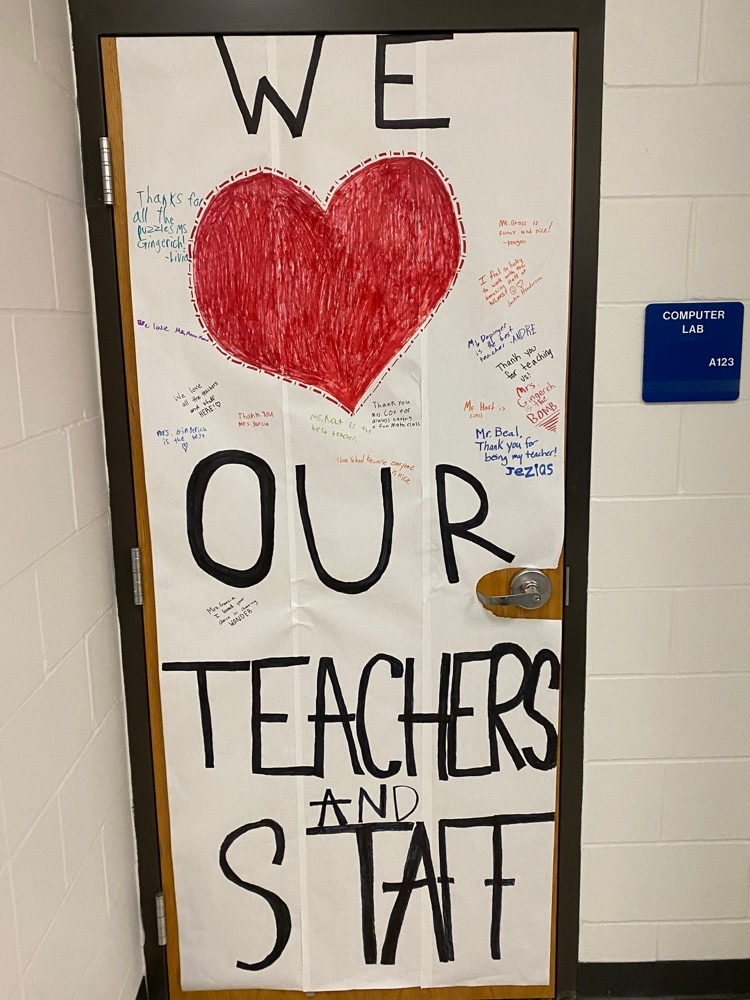 WE
Thanks for
all the
puzzles Ms.
Gingerich!
-Livia
Mr. Gross is
funny and nice!
-Reagan
I feel so lucky
to work with this
amazing staff at
We love
Mr.
is the best
teacher -ANDRE
Thank you
for teaching
us!
Mrs.
Gingerich
is the
BOMB
We love
all the teachers
and staff
HERE!
Mrs. Gingerich
is the best
Thank You
Mrs. Garcia
Ms. Kat is the
best teacher
Thank you
Mrs. Cox for
always having
a fun Math class
Mr. Hart is
cool
Mr. Beal,
Thank you for
being my teacher!
Jezias
I love school because everyone
is nice
OUR
Mrs. Garcia
I loved your
class in
WONDER
TEACHERS
AND
STAFF
COMPUTER
LAB
A123